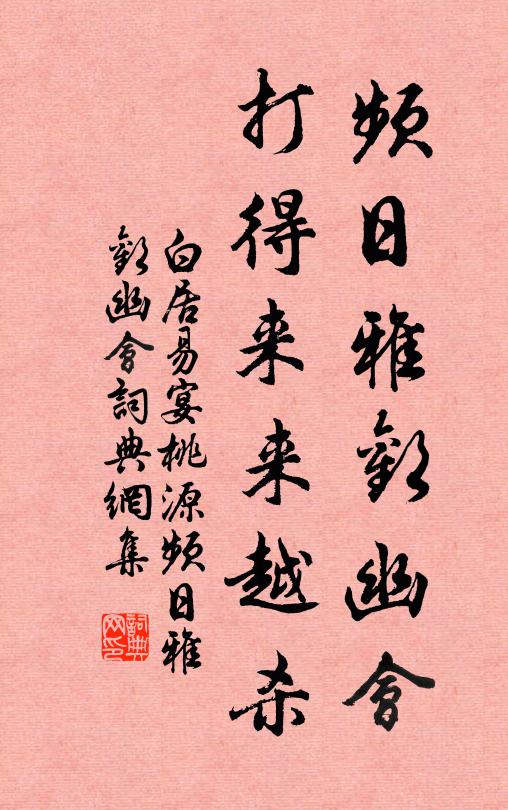 频日雅歡幽會
打得来来越杀
白居易宴桃源频日雅
歡幽會詞典網集
詞典
网印